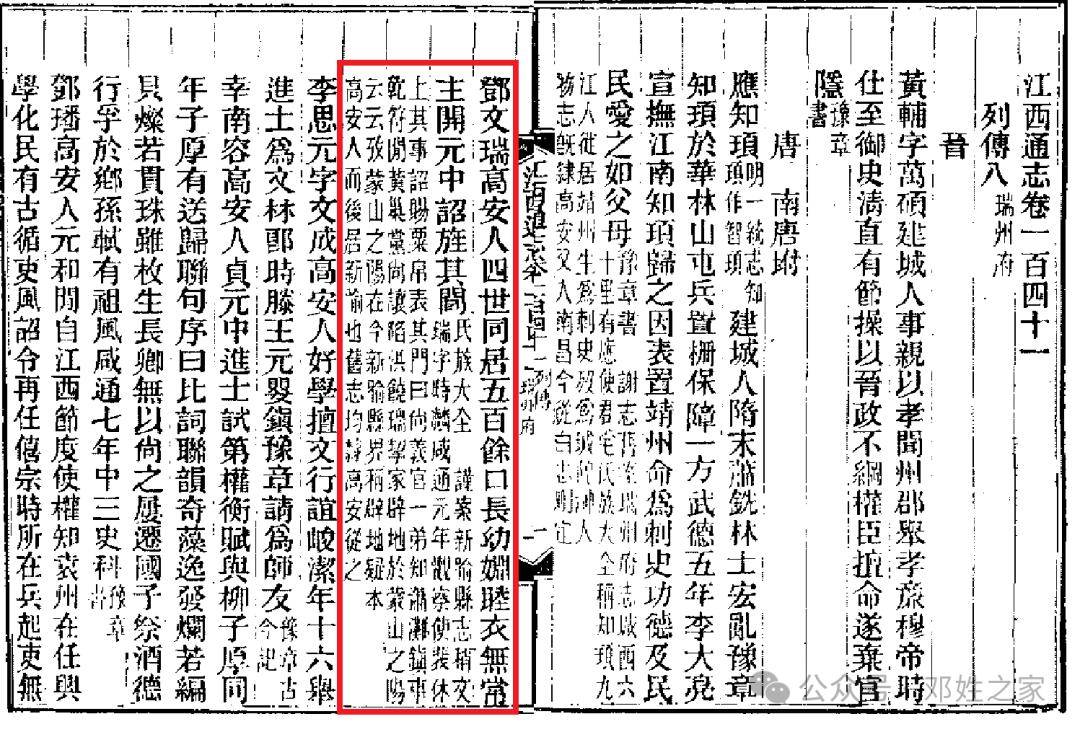 江西通志卷一百四十一
列傳八 瑞州府
晉
黃輔字萬碩建城人事親以孝聞州郡舉孝旅穆帝時
仕至御史清直有節操以晉政不綱權臣擅命遂棄官
隱 豫章書
唐 南唐坿
應知頊 明一統志知頊作智頊 建城人隋末蕭銑林士宏亂豫章
知頊於華林山屯兵置柵保障一方武德五年李大亮
宣撫江南知頊歸之因表置靖州命爲刺史功德及民
民愛之如父母 豫章書 謝志舊瑞州府志城西六十里有應使君宅氏族大全稱知頊九
江人徙居靖州生爲刺史歿爲城
志旣隸高安又入南昌今從白志
江西通志卷一百四十一 列傳 瑞州府 一
鄧文瑞高安人四世同居五百餘口長幼婣睦衣無常
主開元中詔旌其閭 氏族大全 謹案新喻縣志稱文瑞字時麟咸通元年觀察使裴休
上其事詔賜粟帛表其門曰尙義官一弟知瀟灘鎭事
乾符間黃巢黨尙讓陷洪饒瑞挈家辟地於蒙山之陽
云云攷蒙山之陽在今新喻縣界稱辟地疑本
高安人而後居新喻也舊志均隸高安從之
李思元字文成高安人好學擅文行誼峻潔年十六舉
進士爲文林郎時滕王元嬰鎭豫章請爲師友 豫章古今記
幸南容高安人貞元中進士試第權衡賦與柳子厚同
年子厚有送歸聯句序曰比詞聯韻奇藻逸發爛若編
貝燦若貫珠雖枚生長卿無以尙之屢遷國子祭酒德
行孚於鄉孫軾有祖風咸通七年中三史科 豫章書
鄧璠高安人元和間自江西節度使權知袁州在任興
學化民有古循吏風詔令再任僖宗時所在兵起吏無
公众号 邓姓之家